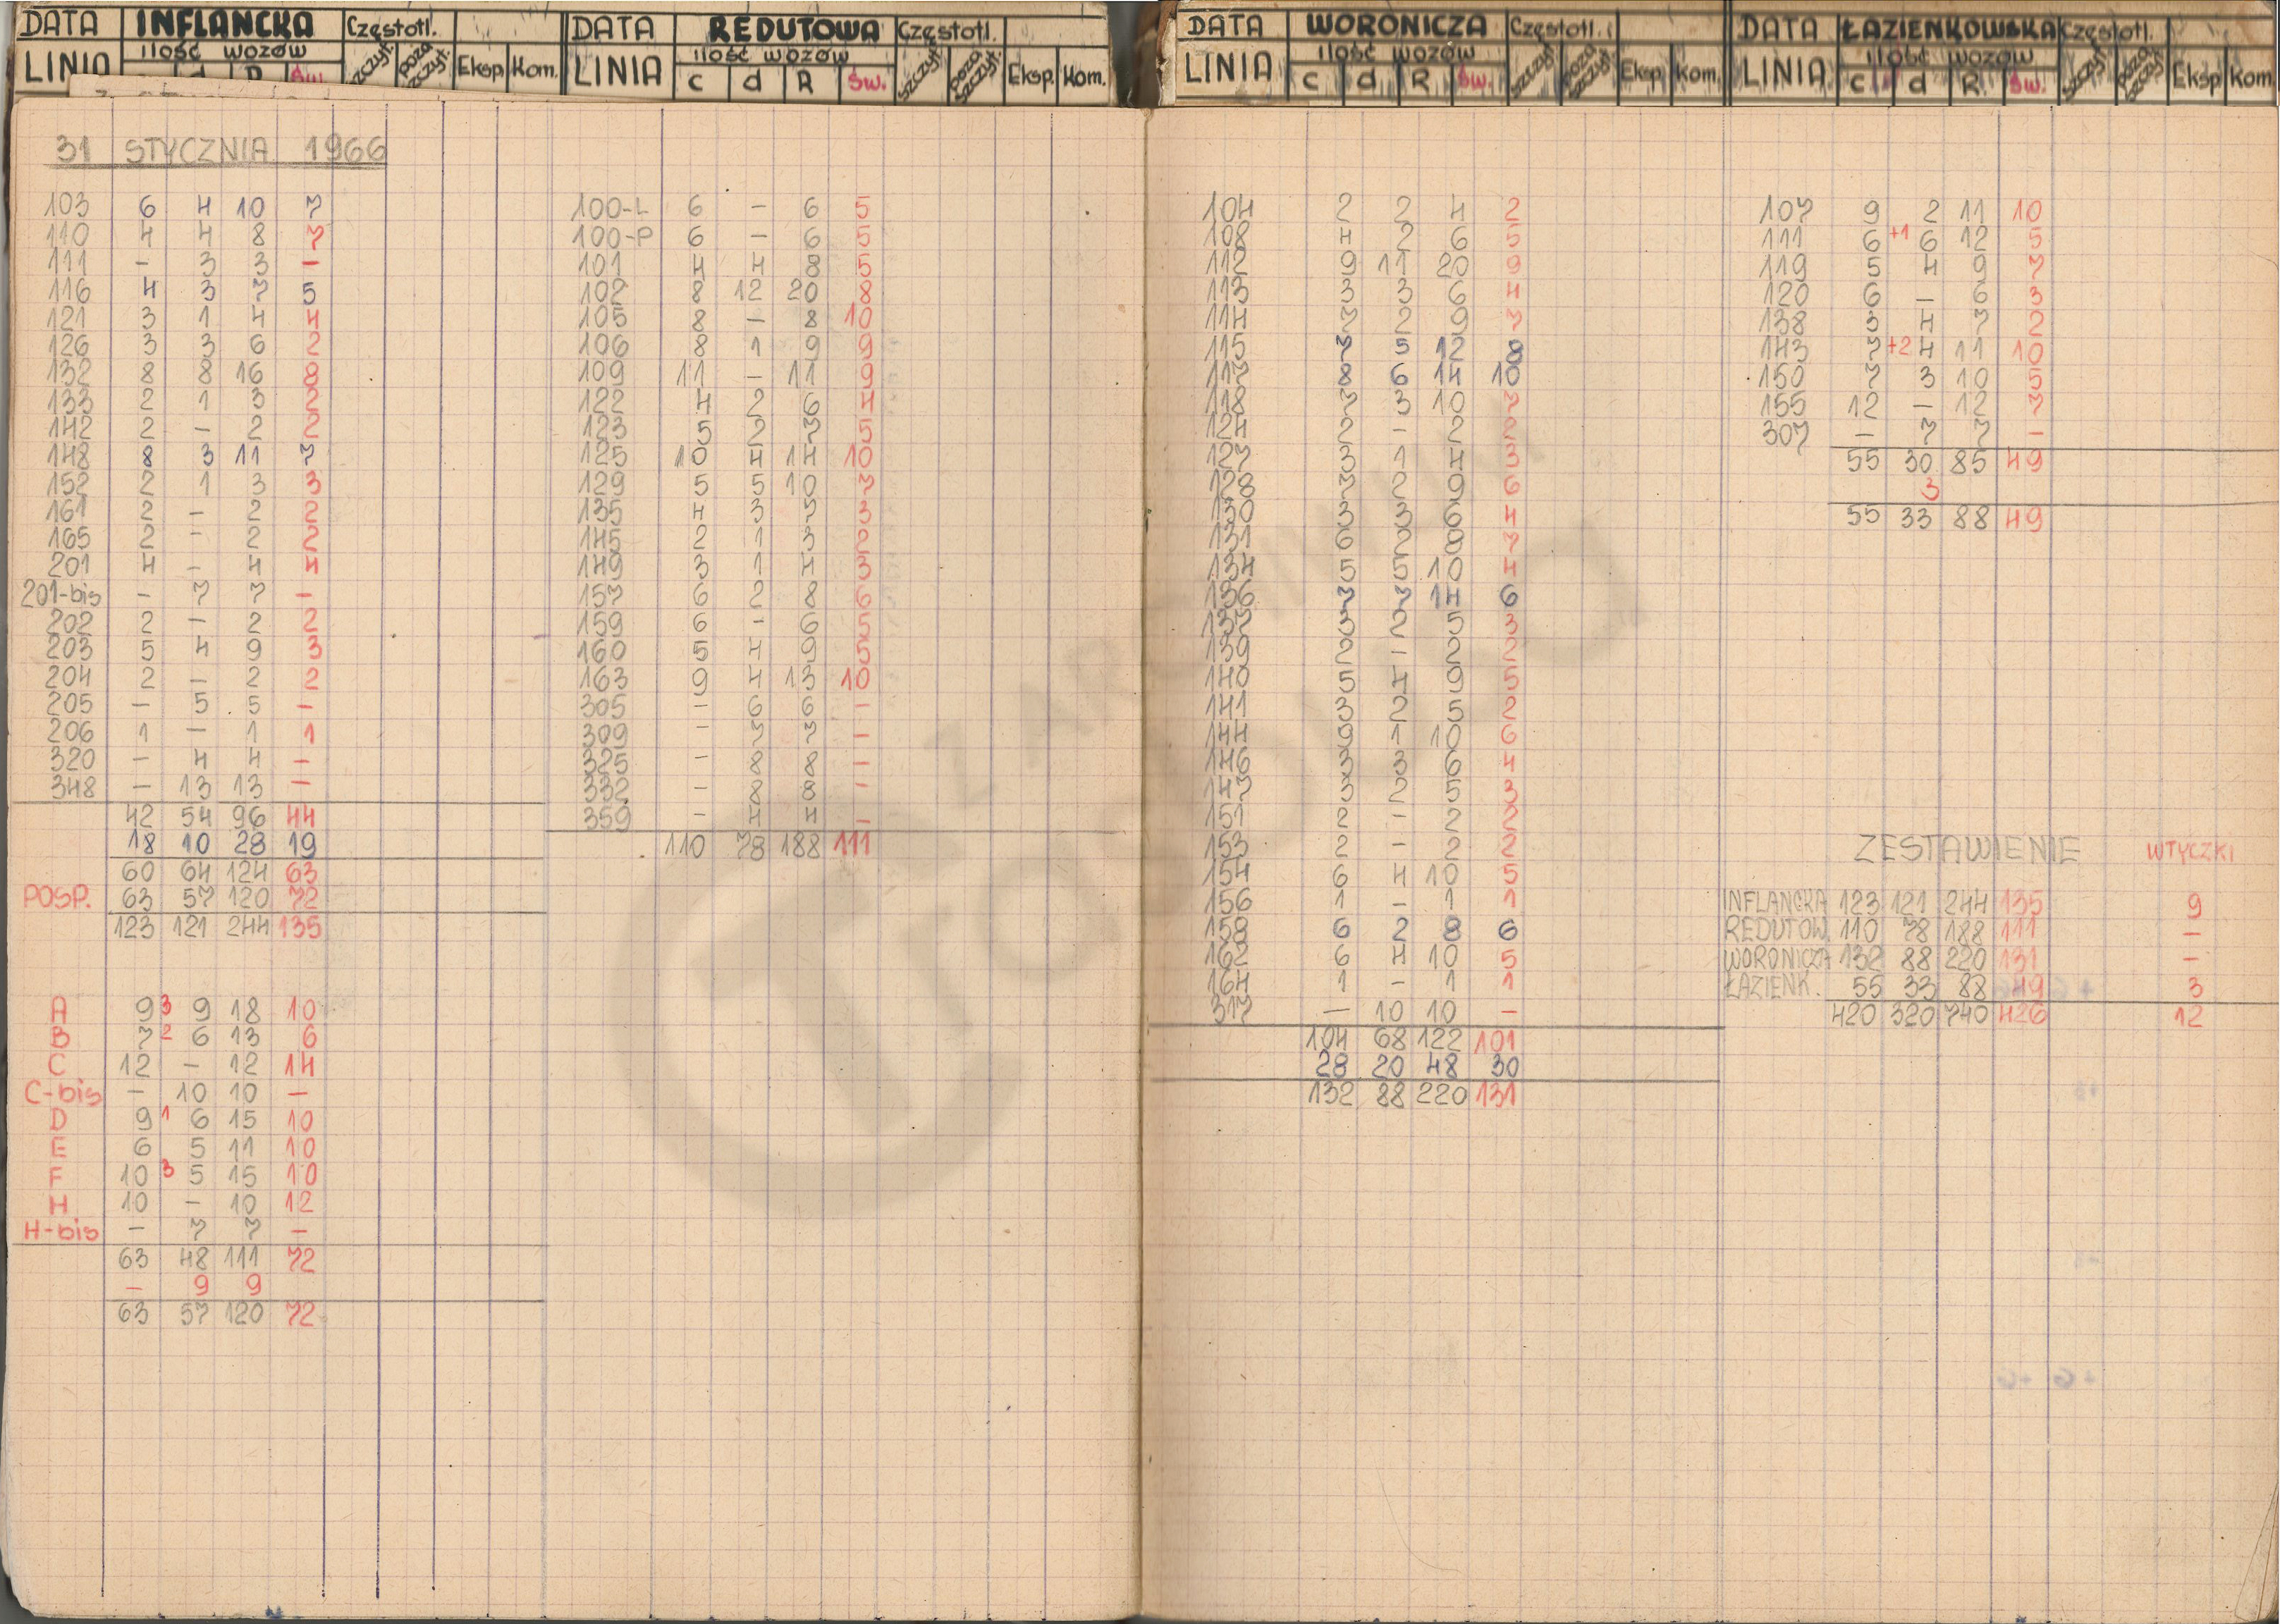 DATA INFLANCKA Częstotl.
LINIA ilość wozów szczyt. poza szczyt. Eksp. Kom.
d R św.
31 STYCZNIA 1966
103 6 4 10 7
110 4 4 8 7
111 - 3 3 -
116 4 3 7 5
121 3 1 4 4
126 3 3 6 2
132 8 8 16 8
133 2 1 3 2
142 2 - 2 2
148 8 3 11 7
152 2 1 3 3
161 2 - 2 2
165 2 - 2 2
201 4 - 4 4
201-bis - 7 7 -
202 2 - 2 2
203 5 4 9 3
204 2 - 2 2
205 - 5 5 -
206 1 - 1 1
320 - 4 4 -
348 - 13 13 -
42 54 96 44
18 10 28 19
60 64 124 63
POSP. 63 57 120 72
123 121 244 135
A 9 3 9 18 10
B 7 2 6 13 6
C 12 - 12 14
C-bis - 10 10 -
D 9 1 6 15 10
E 6 5 11 10
F 10 3 5 15 10
H 10 - 10 12
H-bis - 7 7 -
63 48 111 72
- 9 9
63 57 120 72
DATA REDUTOWA Częstotl.
LINIA ilość wozów szczyt. poza szczyt. Eksp. Kom.
c d R św.
100-L 6 - 6 5
100-P 6 - 6 5
101 4 4 8 5
102 8 12 20 8
105 8 - 8 10
106 8 1 9 9
109 11 - 11 9
122 4 2 6 4
123 5 2 7 5
125 10 4 14 10
129 5 5 10 7
135 4 3 7 3
145 2 1 3 2
149 3 1 4 3
157 6 2 8 6
159 6 - 6 5
160 5 4 9 5
163 9 4 13 10
305 - 6 6 -
309 - 7 7 -
325 - 8 8 -
332 - 8 8 -
359 - 4 4 -
110 78 188 111
DATA WORONICZA Częstotl.
LINIA ilość wozów szczyt. poza szczyt. Eksp. Kom.
c d R św.
104 2 2 4 2
108 4 2 6 5
112 9 11 20 9
113 3 3 6 4
114 7 2 9 7
115 7 5 12 8
117 8 6 14 10
118 7 3 10 7
124 2 - 2 2
127 3 1 4 3
128 7 2 9 6
130 3 3 6 4
131 6 2 8 7
134 5 5 10 4
136 7 7 14 6
137 3 2 5 3
139 2 - 2 2
140 5 4 9 5
141 3 2 5 2
144 9 1 10 6
146 3 3 6 4
147 3 2 5 3
151 2 - 2 2
153 2 - 2 2
154 6 4 10 5
156 1 - 1 1
158 6 2 8 6
162 6 4 10 5
164 1 - 1 1
317 - 10 10 -
104 68 122 101
28 20 48 30
132 88 220 131
DATA ŁAZIENKOWSKA Częstotl.
LINIA ilość wozów szczyt. poza szczyt. Eksp. Kom.
c d R. św.
107 9 2 11 10
111 6 +1 6 12 5
119 5 4 9 7
120 6 - 6 3
138 3 4 7 2
143 7 +2 4 11 10
150 7 3 10 5
155 12 - 12 7
307 - 7 7 -
55 30 85 49
3
55 33 88 49
ZESTAWIENIE WTYCZKI
INFLANCKA 123 121 244 135 9
REDUTOW. 110 78 188 111 -
WORONICZA 132 88 220 131 -
ŁAZIENK. 55 33 88 49 3
420 320 740 426 12